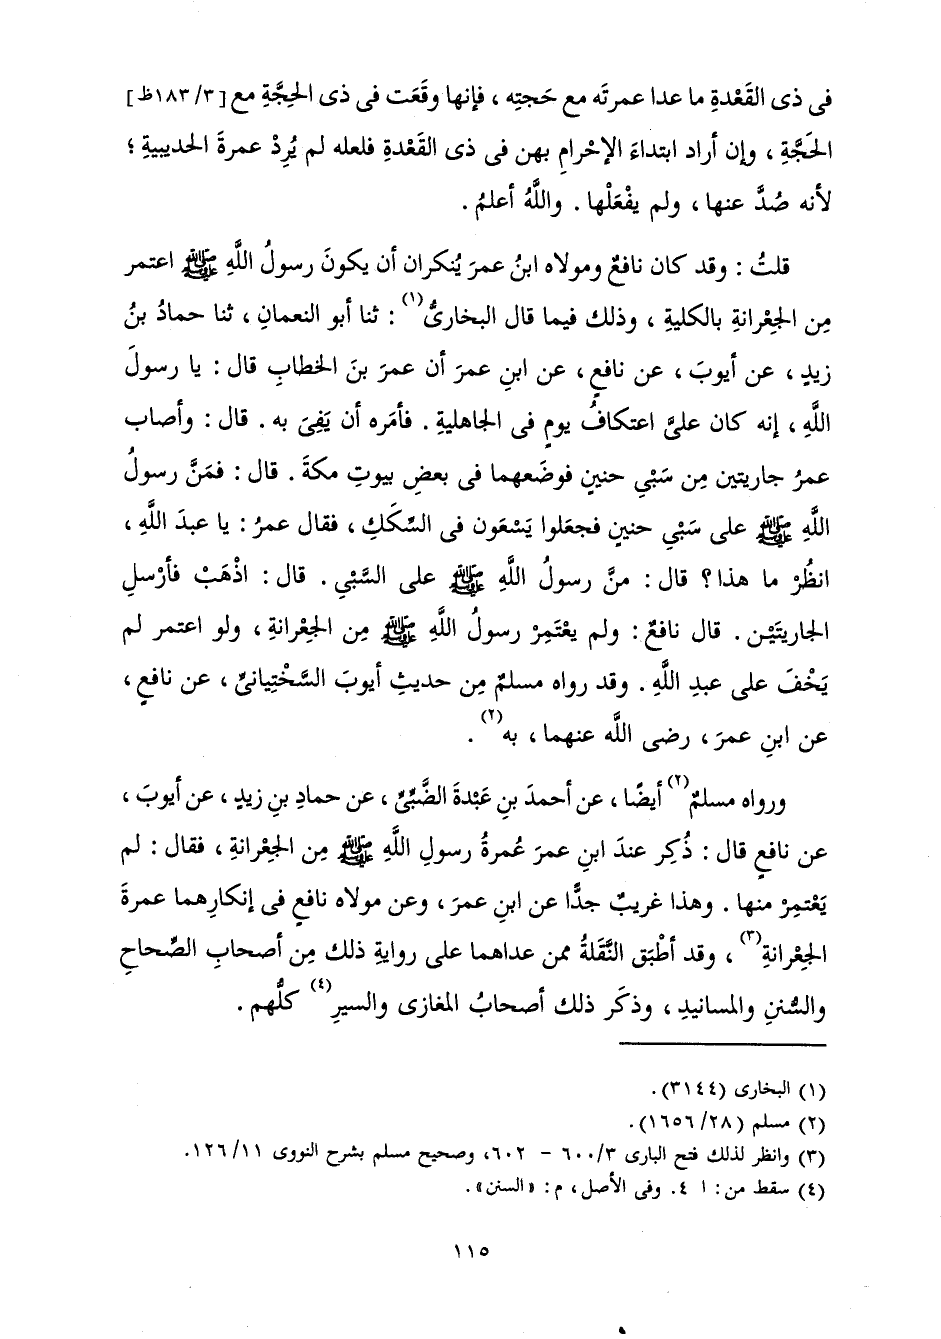 فى ذى القَعْدةِ ما عدا عمرتَه مع حَجتِه ، فإنها وقَعَت فى ذى الحِجَّةِ مع [٣/ ١٨٣ظ]
الحَجَّةِ ، وإن أراد ابتداءَ الإحْرامِ بهن فى ذى القَعْدةِ فلعله لم يُرِدْ عمرةَ الحديبيةِ ؛
لأنه صُدَّ عنها ، ولم يفْعَلْها . واللَّهُ أعلمُ .
قلتُ : وقد كان نافعٌ ومولاه ابنُ عمرَ يُنكران أن يكونَ رسولُ اللَّهِ ﷺ اعتمر
مِن الجِعْرانةِ بالكليةِ ، وذلك فيما قال البخارىُّ(١) : ثنا أبو النعمانِ ، ثنا حمادُ بنُ
زيدٍ ، عن أيوبَ ، عن نافعٍ ، عن ابنِ عمرَ أن عمرَ بنَ الخطابِ قال : يا رسولَ
اللَّهِ ، إنه كان علىَّ اعتكافُ يومٍ فى الجاهليةِ . فأمَره أن يَفِىَ به . قال : وأصاب
عمرُ جاريتين مِن سَبْىِ حنينٍ فوضَعهما فى بعضِ بيوتِ مكةَ . قال : فمَنَّ رسولُ
اللَّهِ ﷺ على سَبْىِ حنينٍ فجعَلوا يَسْعَون فى السِّكَكِ ، فقال عمرُ : يا عبدَ اللَّهِ ،
انظُرْ ما هذا ؟ قال : منَّ رسولُ اللَّهِ ﷺ على السَّبْىِ . قال : اذْهَبْ فأرْسلِ
الجاريتَيْن . قال نافعٌ : ولم يعْتَمِرْ رسولُ اللَّهِ ﷺ مِن الجِعْرانةِ ، ولو اعتمر لم
يَخْفَ على عبدِ اللَّهِ . وقد رواه مسلمٌ مِن حديثِ أيوبَ السَّخْتِيانىِّ ، عن نافعٍ ،
عن ابنِ عمرَ ، رضى اللَّه عنهما ، به(٢) .
ورواه مسلمٌ(٢) أيضًا ، عن أحمدَ بنِ عَبْدةَ الضَّبِّىِّ ، عن حمادِ بنِ زيدٍ ، عن أيوبَ ،
عن نافعٍ قال : ذُكِر عندَ ابنِ عمرَ عُمرةُ رسولِ اللَّهِ ﷺ مِن الجِعْرانةِ ، فقال : لم
يَعْتمِرْ منها . وهذا غريبٌ جدًّا عن ابنِ عمرَ ، وعن مولاه نافعٍ فى إنكارِهما عمرةَ
الجِعْرانةِ(٣) ، وقد أطْبَق النَّقَلةُ ممن عداهما على روايةِ ذلك مِن أصحابِ الصِّحاحِ
والسُّننِ والمسانيدِ ، وذكَر ذلك أصحابُ المغازى والسيرِ(٤) كلُّهم .
(١) البخارى (٣١٤٤) .
(٢) مسلم (٢٨/ ١٦٥٦) .
(٣) وانظر لذلك فتح البارى ٦٠٠/٣ - ٦٠٢، وصحيح مسلم بشرح النووى ١١/ ١٢٦.
(٤) سقط من : ا ٤. وفى الأصل ، م : « السنن » .
١١٥